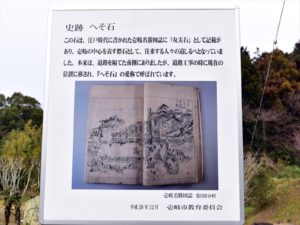 史跡 へそ石
この石は、江戸時代に書かれた壱岐名勝図誌に「女夫石」として記載が
あり、壱岐の中心を表す標石として、往来する人々の道しるべとなっていま
した。本来は、道路を隔てた南側にありましたが、道路工事の時に現在の
位置に移され、『へそ石』の愛称で呼ばれています。
壱岐名勝図誌
平成28年12月 壱岐市教育委員会